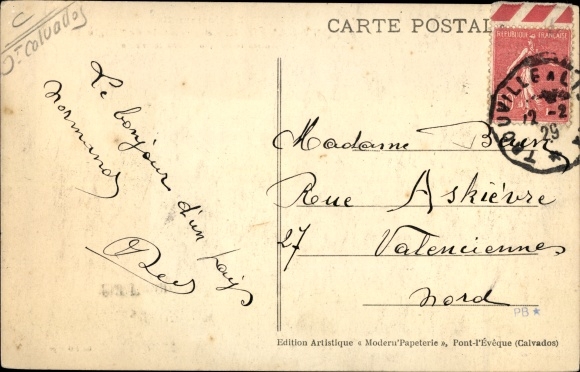 Dt Calvados
CARTE POSTALE
REPUBLIQUE FRANÇAISE
TROUVILLE A LIS
12 -2
29
Le bonjour d'un pays
normand
Madame
Rue Askièvre
27 Valenciennes
Nord
PB
Edition Artistique « Modern'Papeterie », Pont-l'Évêque (Calvados)